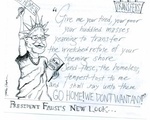 "Give me your tired, your poor
your huddled masses
yearning to
the wretched refuse of
your teeming shore.
Send these, the homeless,
tempest-tost to me
and I shall say unto them
GO HOME! WE DON'T WANT ANY!"
PRESIDENT FAUST'S NEW LOOK...